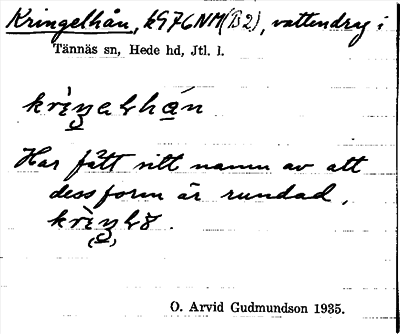 Kringelhån, k976NM(B2), vattendrag i
Tännäs sn, Hede hd, Jtl. l.
Har fått sitt namn av att
dess form är rundad,
O. Arvid Gudmundson 1935.